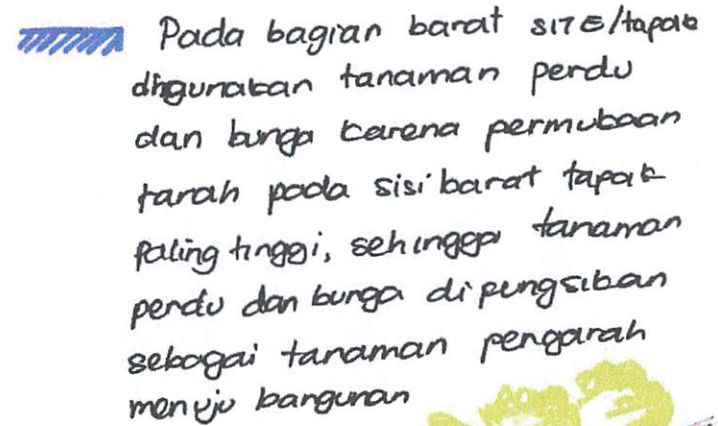 Pada bagian barat SITE/tapak
digunakan tanaman perdu
dan bunga karena permukaan
tanah pada sisi barat tapak
paling tinggi, sehingga tanaman
perdu dan bunga difungsikan
sebagai tanaman pengarah
menuju bangunan